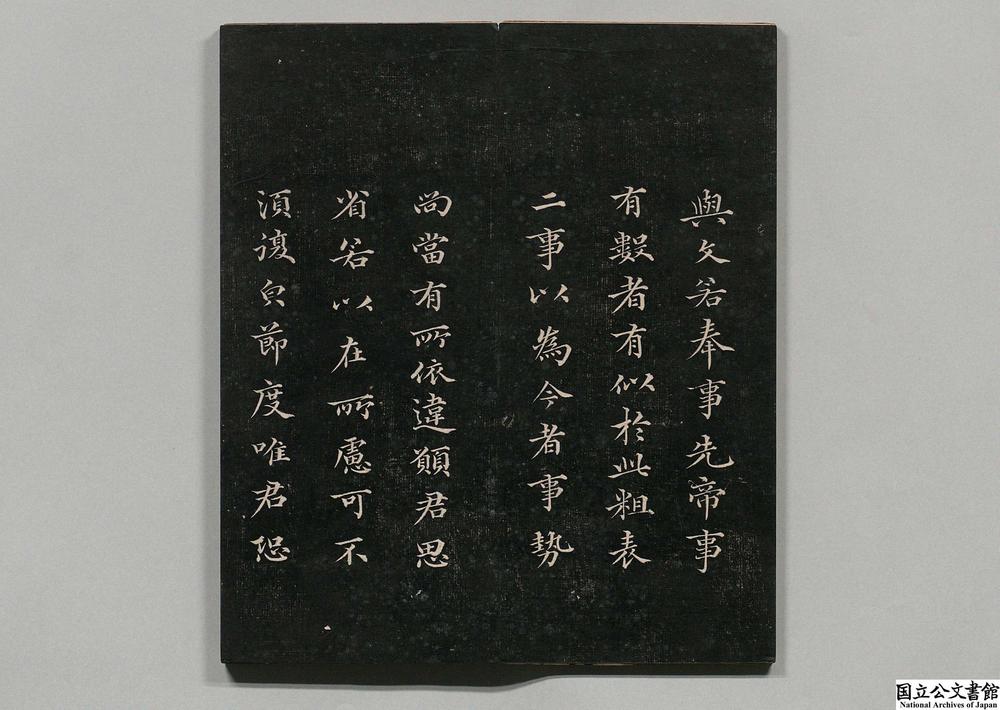 與文若奉事先帝事
有數者有似於此粗表
二事以為今者事勢
尚當有所依違願君思
省若以在所慮可不
須復自節度唯君恐
国立公文書館
National Archives of Japan